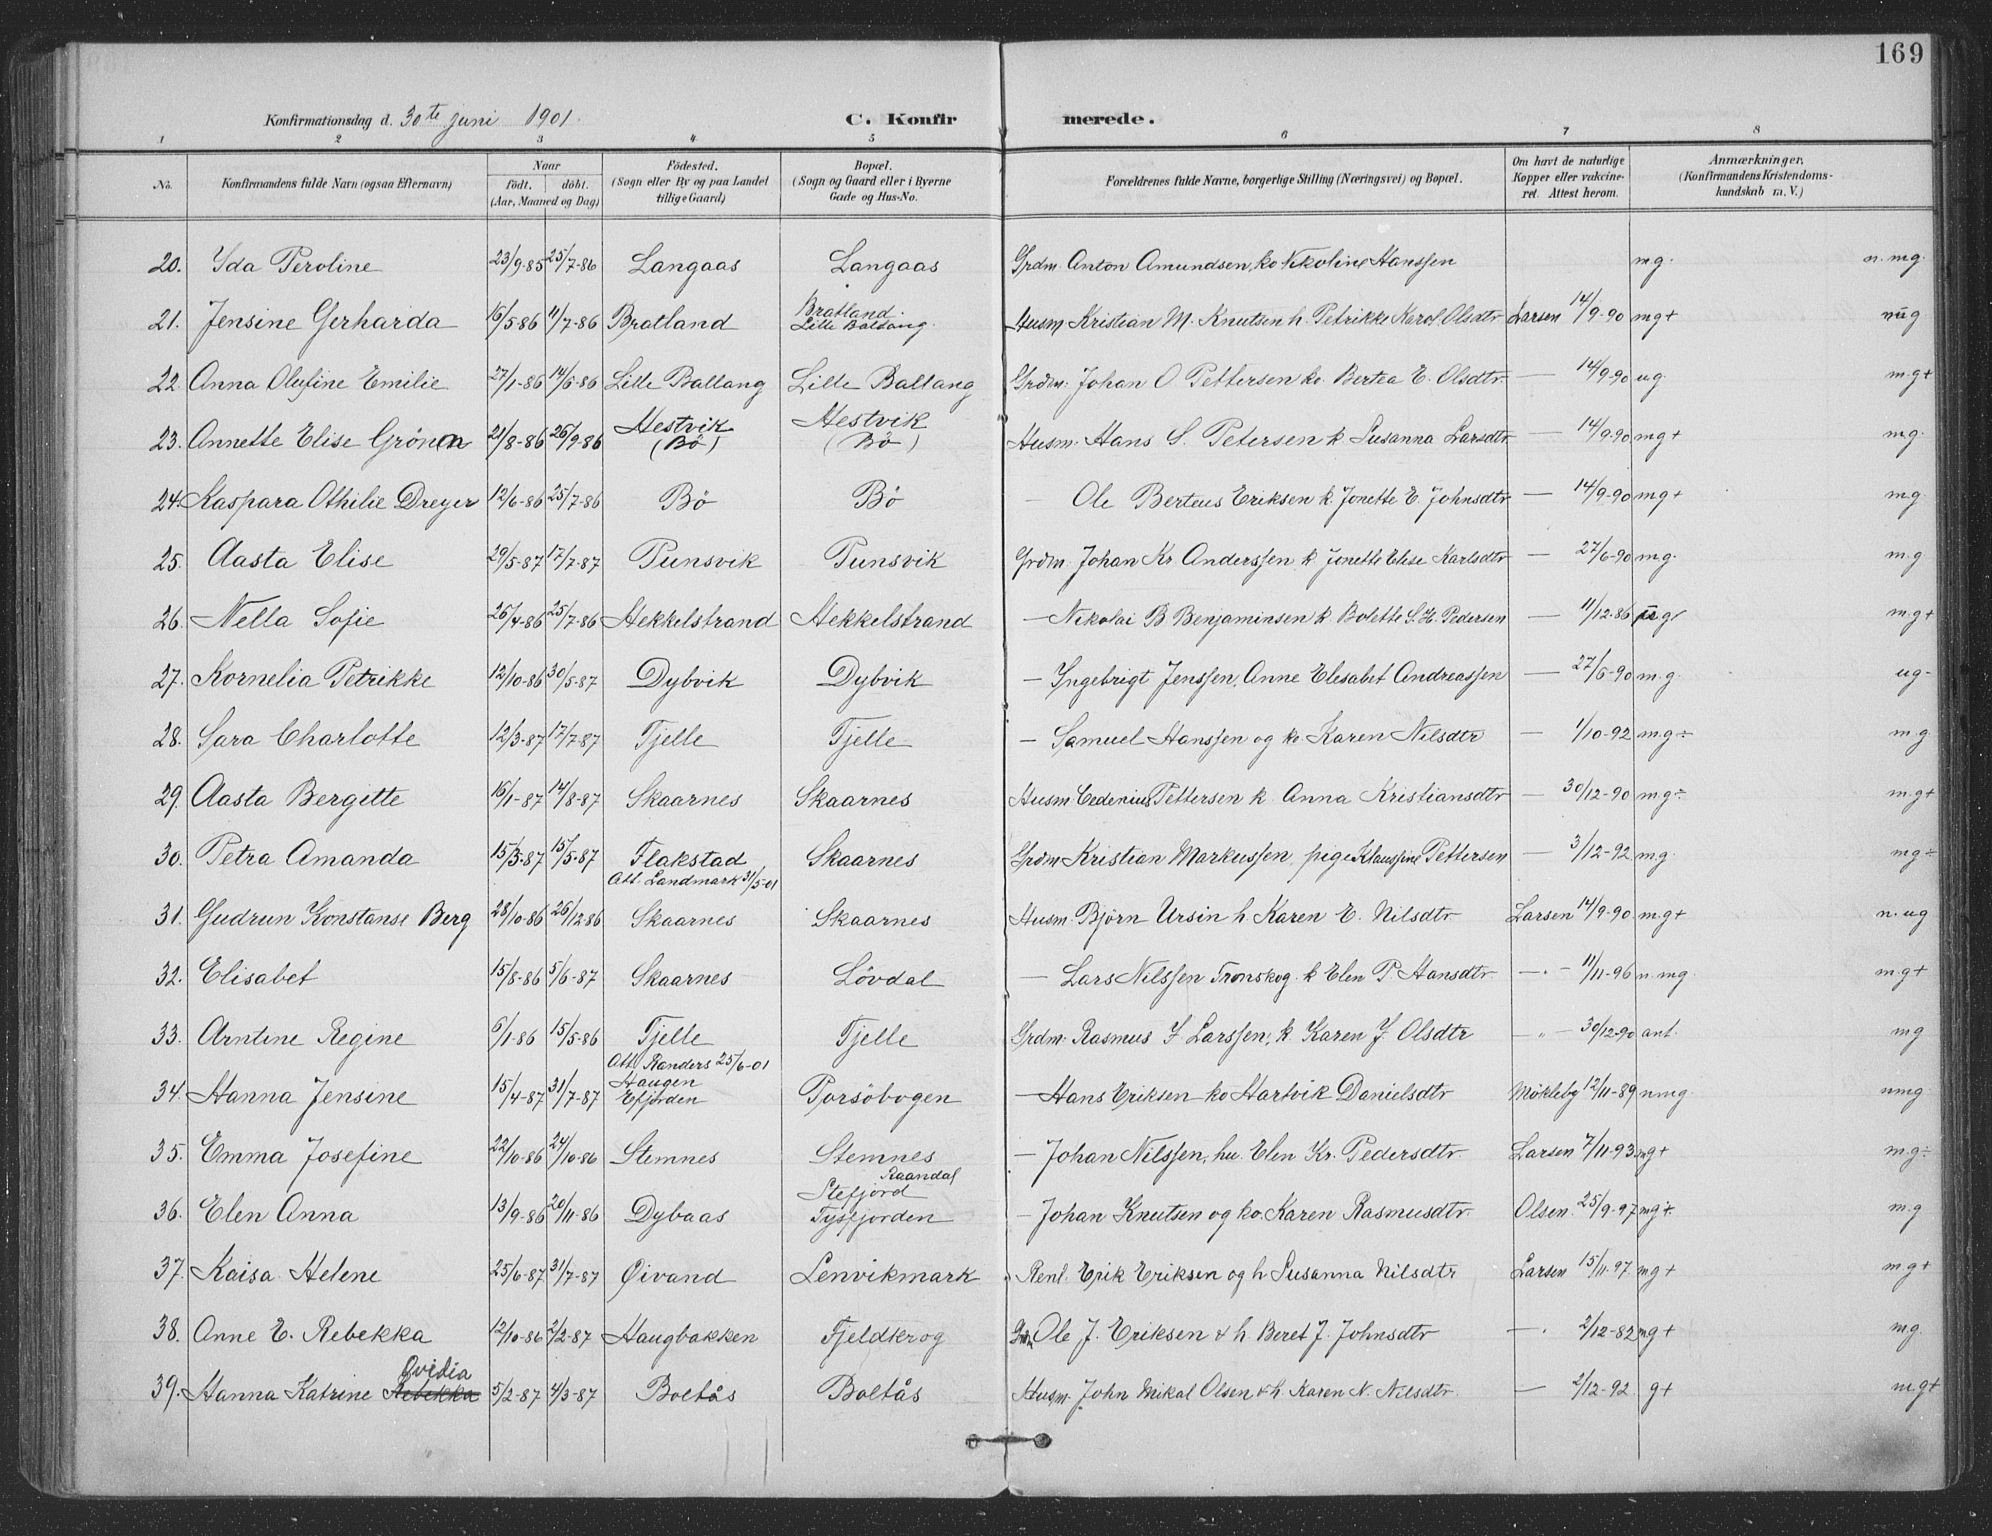 169
Konfirmationsdag d. 30te juni 1901. C. Konfirmerede.
1 2 3 4 5 6 7 8
No. Konfirmandens fulde Navn (ogsaa Efternavn) Naar födt. döbt. (Aar, Maaned og Dag) Födested. (Sogn eller By og paa Landet tillige Gaard) Bopæl. (Sogn og Gaard eller i Byerne Gade og Hus-No. Forældrenes fulde Navne, borgerlige Stilling (Næringsvei) og Bopæl. Om havt de naturlige Kopper eller vakcineret. Attest herom. Anmærkninger. (Konfirmandens Kristendomskundskab m. V.)
20. Ida Peroline 23/9-85 25/7-86 Langaas Langaas Grdm. Anton Amundsen, ko Nikoline Hanssen mg. n. mg.
21. Jensine Gerharda 16/5-86 11/7-86 Bratland Bratland. Lille Baltang. Husm. Kristian M. Knutsen h. Petrikke Karol. Olsdtr Larsen 14/9-90 mg+ mg
22. Anna Olufine Emilie 27/1-86 14/6-86 Lille Ballang Lille Baltang Grdm. Johan O. Pettersen ko. Bertea E. Olsdtr. — 14/9-90 ug. m.g+
23. Annette Elise Grönn 21/8-86 26/9-86 Hestvik (Bö) Hestvik (Bö) Husm. Hans S. Petersen k. Susanna Larsdtr — 14/9-90 mg+ m.g.
24. Kaspara Othilie Dreyer 12/6-86 25/7-86 Bö Bö — Ole Berteus Eriksen k. Jonette E. Johnsdtr — 14/9-90 mg+ mg.
25. Aasta Elise 29/5-87 17/7-87 Punsvik Punsvik Grdm. Johan Kr. Anderssen k. Jonette Elise Karlsdtr — 27/6-90 m.g. m.g
26. Nella Sofie 26/4-86 25/7-86 Hekkelstrand Hekkelstrand — Nikolai B Benjaminsen k. Bolette S. H. Pedersen — 11/12-86 m.g+
27. Kornelia Petrikke 12/10-86 30/5-87 Dybvik Dybvik — Ingebrigt Jenssen, Anne Elesabet Andreassen — 27/6-90 m.g. ug-
28. Sara Charlotte 12/3-87 17/7-87 Tjelle Tjelle — Samuel Hanssen og ko Karen Nilsdtr — 1/10-92 m.g÷ m.g
29. Aasta Bergitte 16/1-87 14/8-87 Skaarnes Skaarnes Husm Cedenius Pettersen k. Anna Kristiansdtr — 30/12-90 m.g÷ m.g+
30. Petra Amanda 15/3-87 15/5-87 Flakstad Att. Landmark 31/5-01 Skaarnes Grdm Kristian Markussen, pige Klaussine Pettersen — 3/12-92 m.g. mg÷
31. Gudrun Konstanse Berg 28/10-86 26/12-86 Skaarnes Skaarnes Husm. Björn Ursin h. Karen E. Nilsdtr Larsen 14/9-90 m.g+ n. ug
32. Elisabet 15/8-86 5/6-87 Skaarnes Lövdal — Lars Nilssen Tronskog. k Elen P. Hansdtr. — 11/11-96 n. mg. m.g+
33. Arntine Regine 6/1-86 15/5-86 Tjelle Tjelle Grdm. Rasmus J Larssen, k. Karen J. Olsdtr — „ — 30/12-90 ant. mg
34. Hanna Jensine 15/4-87 31/7-87 Att. Randers 25/6-01 Haugen Efjorden Porsöbogen — Hans Eriksen ko Hartvik Danielsdtr Mökleby 12/11-89 nmg. nmg
35. Emma Josefine 22/10-86 24/10-86 Stemnes Stemnes — Johan Nilssen, hu. Elen Kr. Pedersdtr. Larsen 7/11-93 mg+ m.g÷
36. Elen Anna 13/9-86 20/11-86 Dybaas Raandal Stefjord Tysfjorden — Johan Knutsen og ko. Karen Rasmusdtr. Olsen. 25/9-97 mg÷ m.g
37. Kaisa Helene 25/6-87 31/7-87 Øivand Lenvikmark Renl. Erik Eriksen og h Susanna Nilsdtr Larsen 15/11-97 mg+ mg+
38. Anne E. Rebekka 12/10-86 2/2-87 Haugbakken Fjeldkrog Grdm Ole J. Eriksen & h. Beret J. Johnsdtr — 2/12-82 mg+ mg.
39. Hanna Katrine Rebekka Ovidia 5/2-87 4/3-87 Boltås Boltås Husm. John Mikal Olsen & h. Karen N. Nilsdtr. — 2/12-92 g+ m.g+